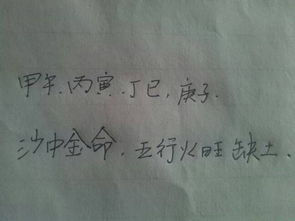 甲午.丙寅.丁巳,庚子.
沙中金命.五行火旺缺土.